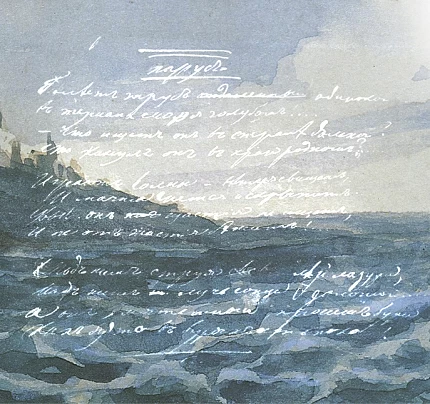 парусъ
Бѣлѣетъ парусъ одинокой
въ туманѣ моря голубомъ...
— Что ищетъ онъ въ странѣ далекой?
Что кинулъ онъ въ краю родномъ?
Играютъ волны — вѣтеръ свищетъ,
И мачта гнется и скрыпитъ.
Увы! онъ
И не отъ счастія бѣжитъ!
струя лазури,
надъ нимъ лучъ солнца золотой
А онъ, мятежный, проситъ бури,
какъ будто въ буряхъ есть покой!